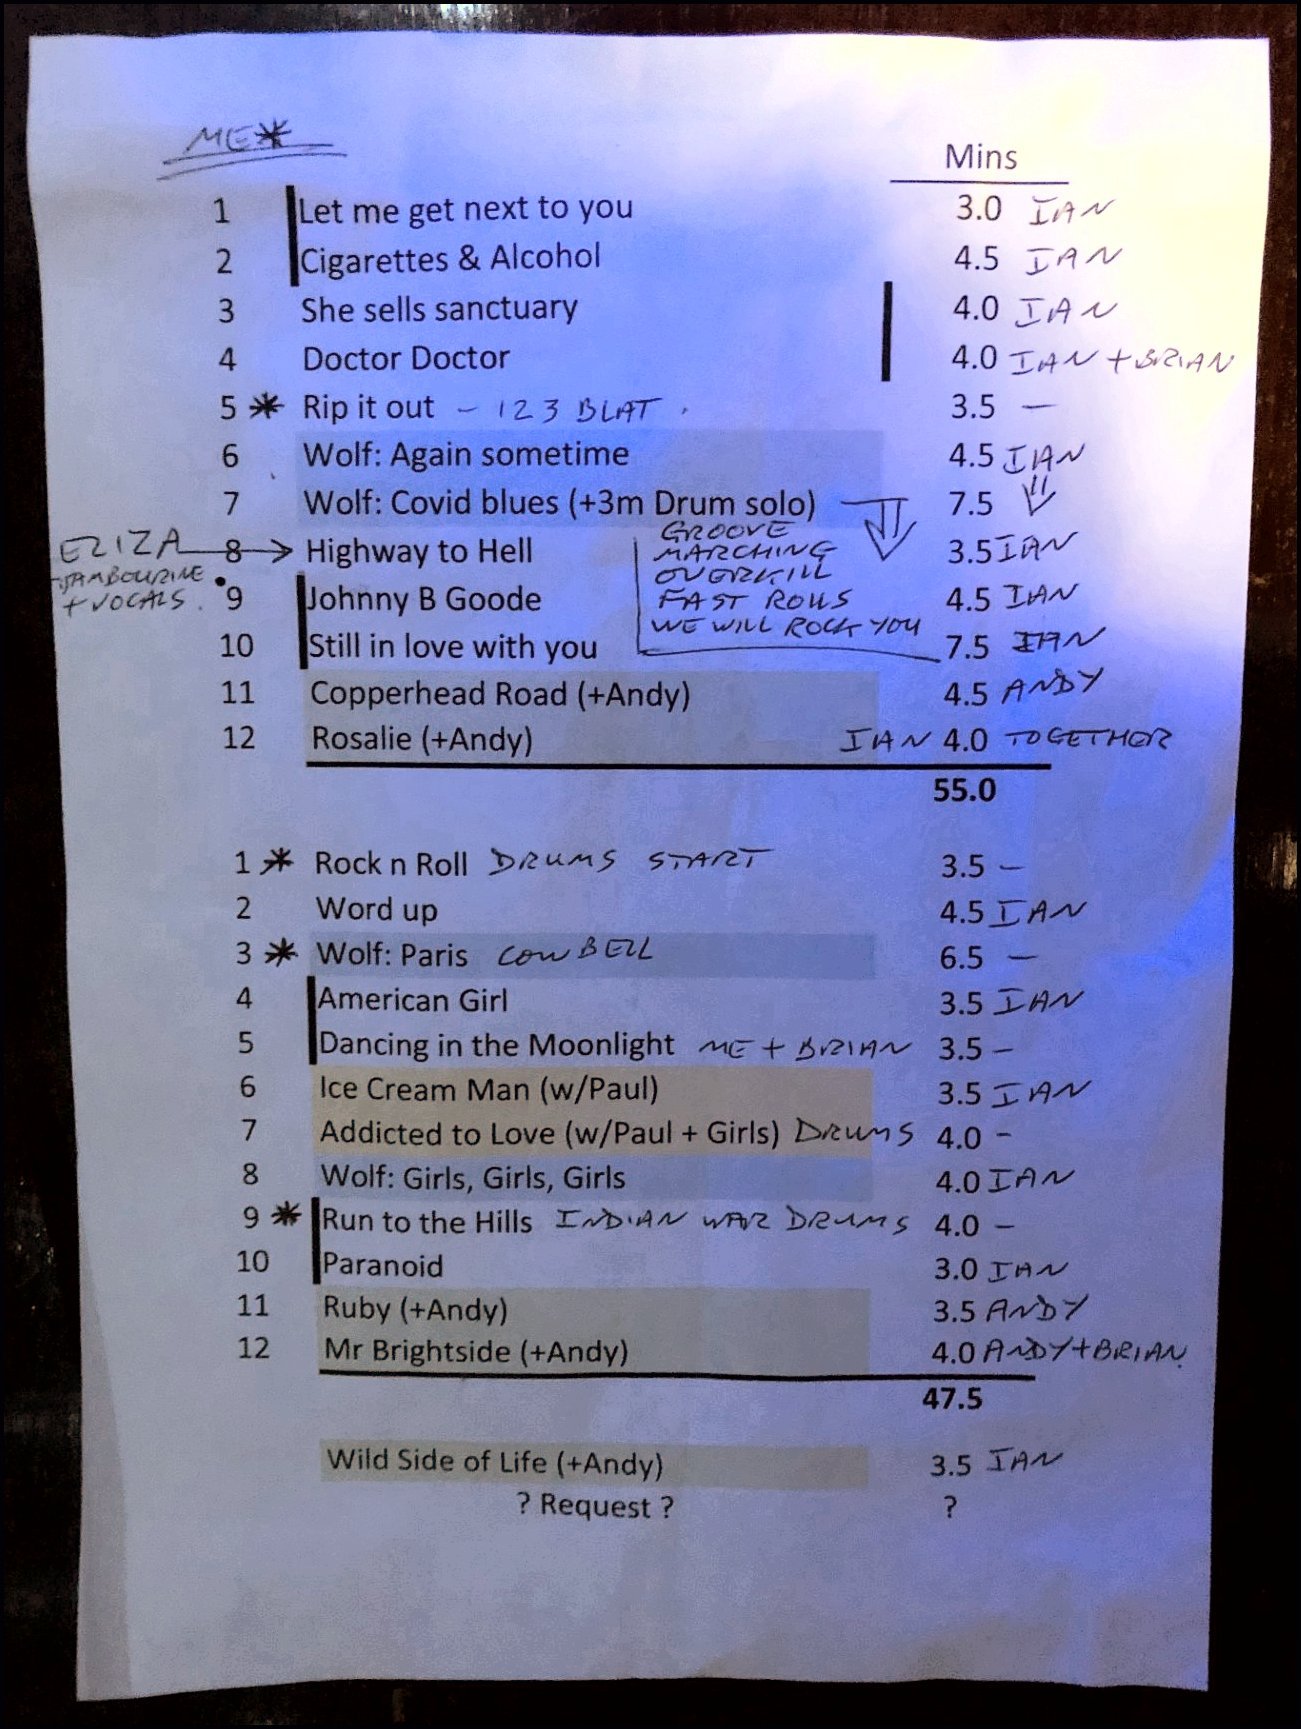 ME*
Mins
1 Let me get next to you 3.0 IAN
2 Cigarettes & Alcohol 4.5 IAN
3 She sells sanctuary 4.0 IAN
4 Doctor Doctor 4.0 IAN + BRIAN
5 * Rip it out - 123 BLAT. 3.5 -
6 Wolf: Again sometime 4.5 IAN
7 Wolf: Covid blues (+3m Drum solo) 7.5
GROOVE
ELIZA 8 Highway to Hell MARCHING 3.5 IAN
TAMBOURINE OVERKILL
+ VOCALS. 9 Johnny B Goode FAST ROLLS 4.5 IAN
WE WILL ROCK YOU
10 Still in love with you 7.5 IAN
11 Copperhead Road (+Andy) 4.5 ANDY
12 Rosalie (+Andy) IAN 4.0 TOGETHER
55.0
1 * Rock n Roll DRUMS START 3.5 -
2 Word up 4.5 IAN
3 * Wolf: Paris COWBELL 6.5 -
4 American Girl 3.5 IAN
5 Dancing in the Moonlight ME + BRIAN 3.5 -
6 Ice Cream Man (w/Paul) 3.5 IAN
7 Addicted to Love (w/Paul + Girls) DRUMS 4.0 -
8 Wolf: Girls, Girls, Girls 4.0 IAN
9 * Run to the Hills INDIAN WAR DRUMS 4.0 -
10 Paranoid 3.0 IAN
11 Ruby (+Andy) 3.5 ANDY
12 Mr Brightside (+Andy) 4.0 ANDY+BRIAN.
47.5
Wild Side of Life (+Andy) 3.5 IAN
? Request ? ?